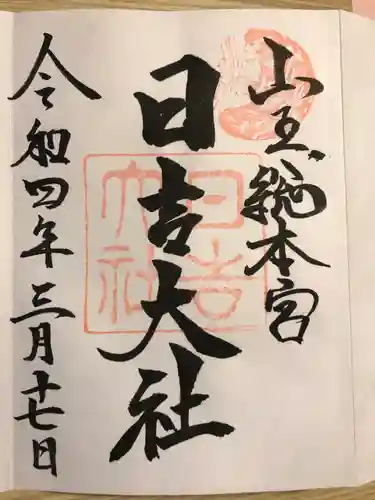 山王総本宮
日吉大社
令和四年三月十七日
日吉
大社